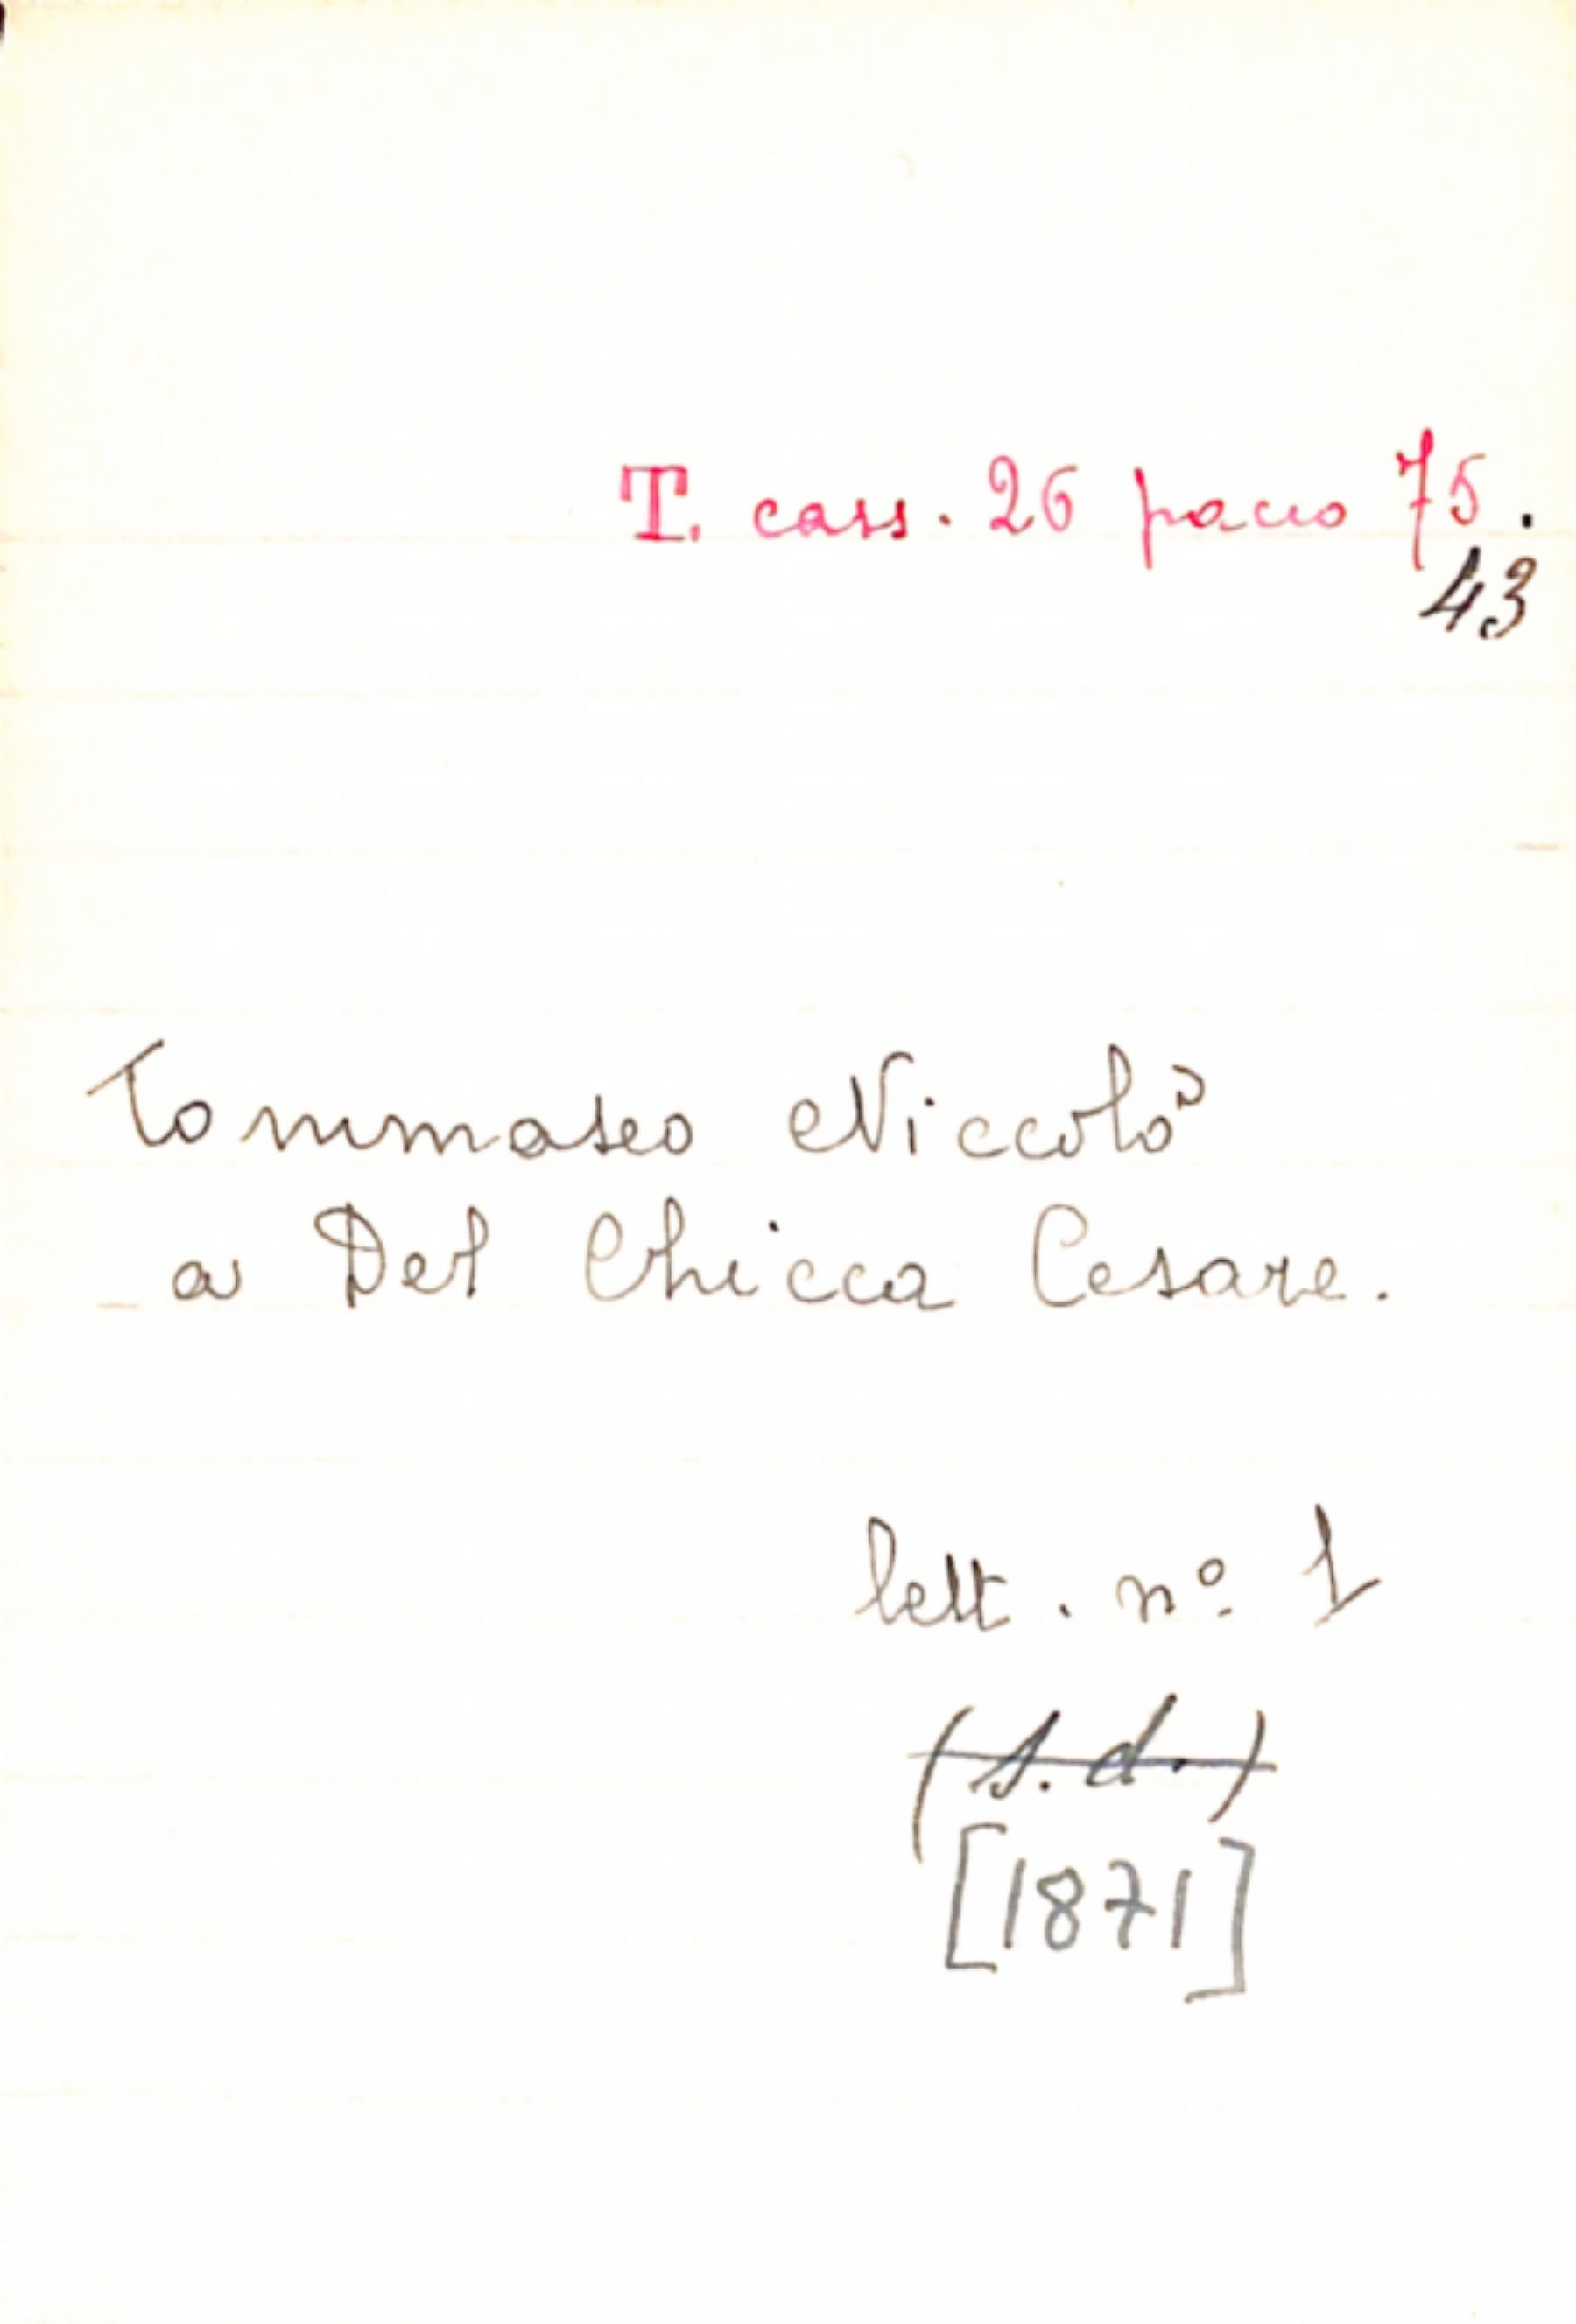 T. cass. 26 pacco 75.
43
Tommaseo Niccolò
a Del Chicca Cesare.
lett. nº 1
(s. d.)
[1871]